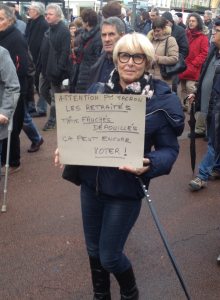 ATTENTION Mr MACRON
LES RETRAITÉS
MÊME FAUCHÉS
DÉPOUILLÉS
ÇA PEUT ENCORE
VOTER !